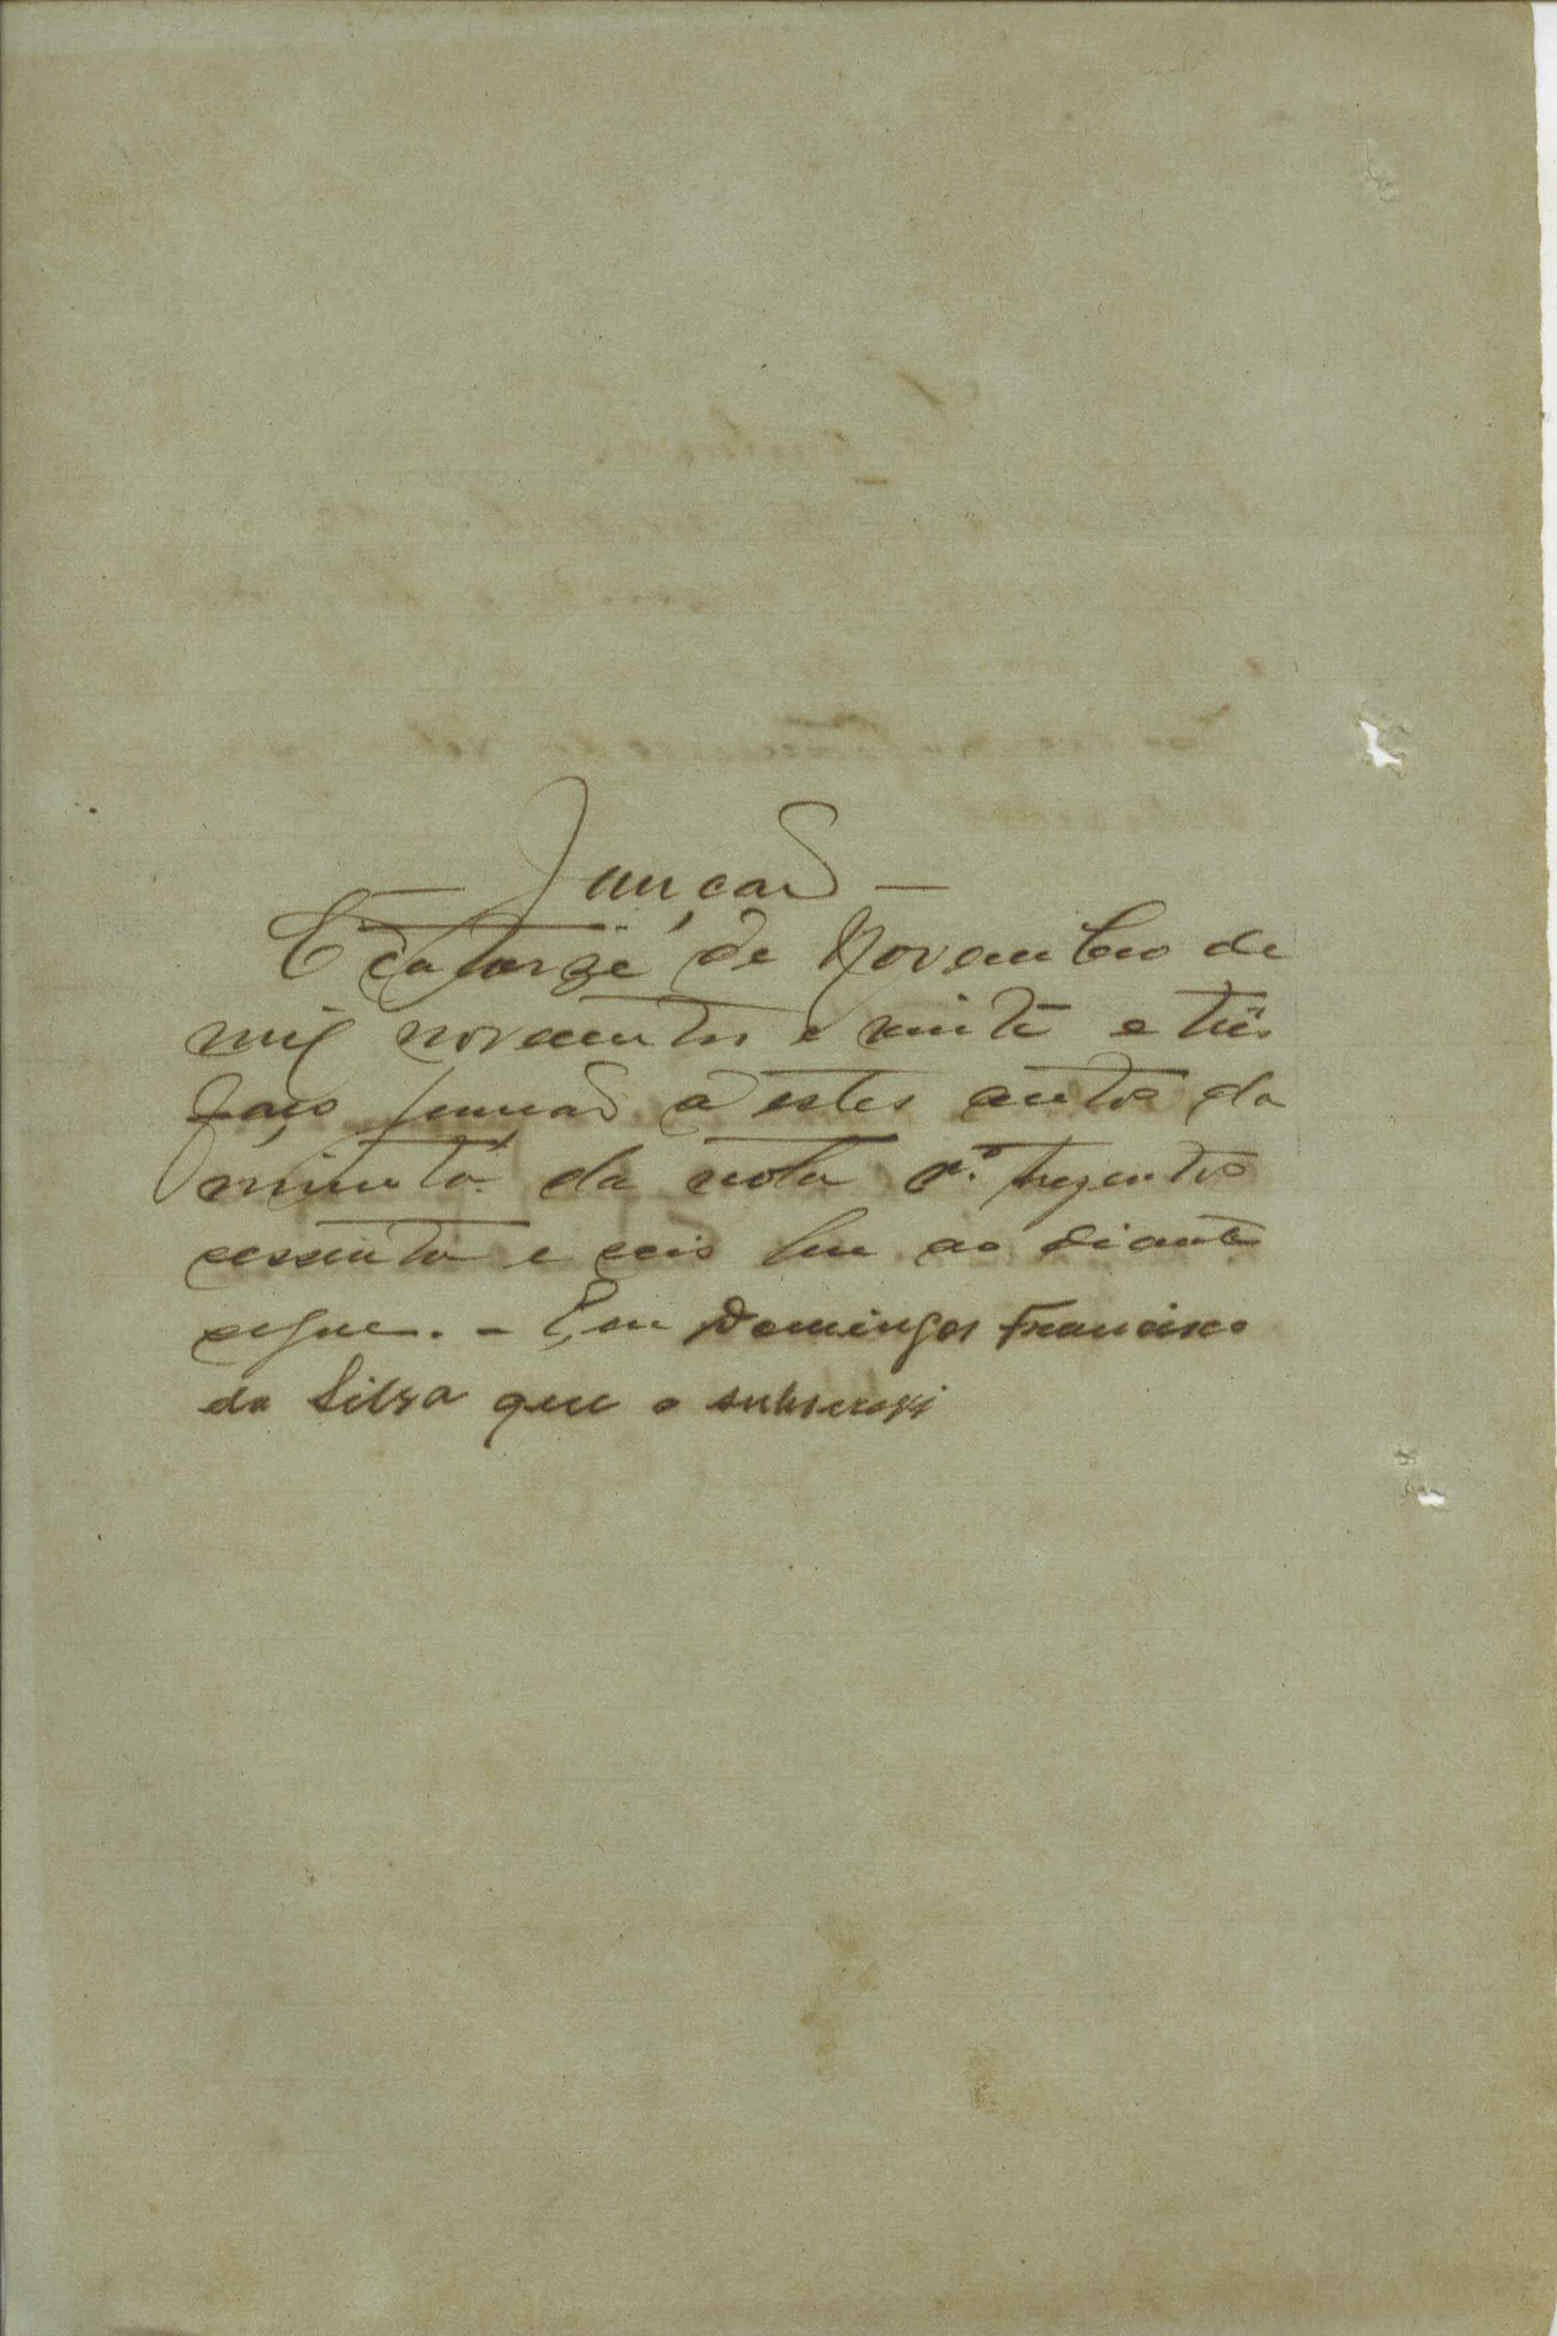 Junção
E catorze de Novembro de
mil novecentos e vinte e três
faço junção a estes autos da
minuta da nota n.º trezentos
sessenta e seis que ao diante
segue. - Eu Domingos Francisco
da Silva que o subscrevi